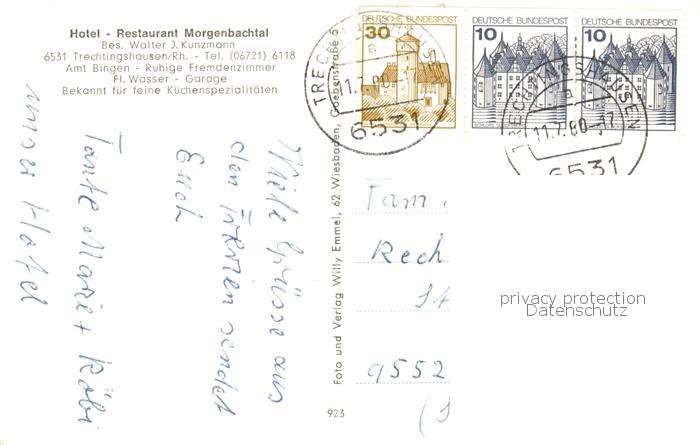 Hotel - Restaurant Morgenbachtal
Bes. Walter J. Kunzmann
6531 Trechtingshausen/Rh. - Tel. (06721) 6118
Amt Bingen - Ruhige Fremdenzimmer
Fl. Wasser - Garage
Bekannt für feine Küchenspezialitäten
Viele Grüsse aus
den Ferien sendet
Euch
Tante Marie + Röbi
unser Hotel
Foto und Verlag Willy Emmel, 62 Wiesbaden, Goebenstraße 5
923
DEUTSCHE BUNDESPOST
30
DEUTSCHE BUNDESPOST
10
DEUTSCHE BUNDESPOST
10
a
11.7.80
6531
TRECHTINGSHAUSEN
a
11.7.80-17
6531
Fam.
Rech
St
9552
privacy protection
Datenschutz